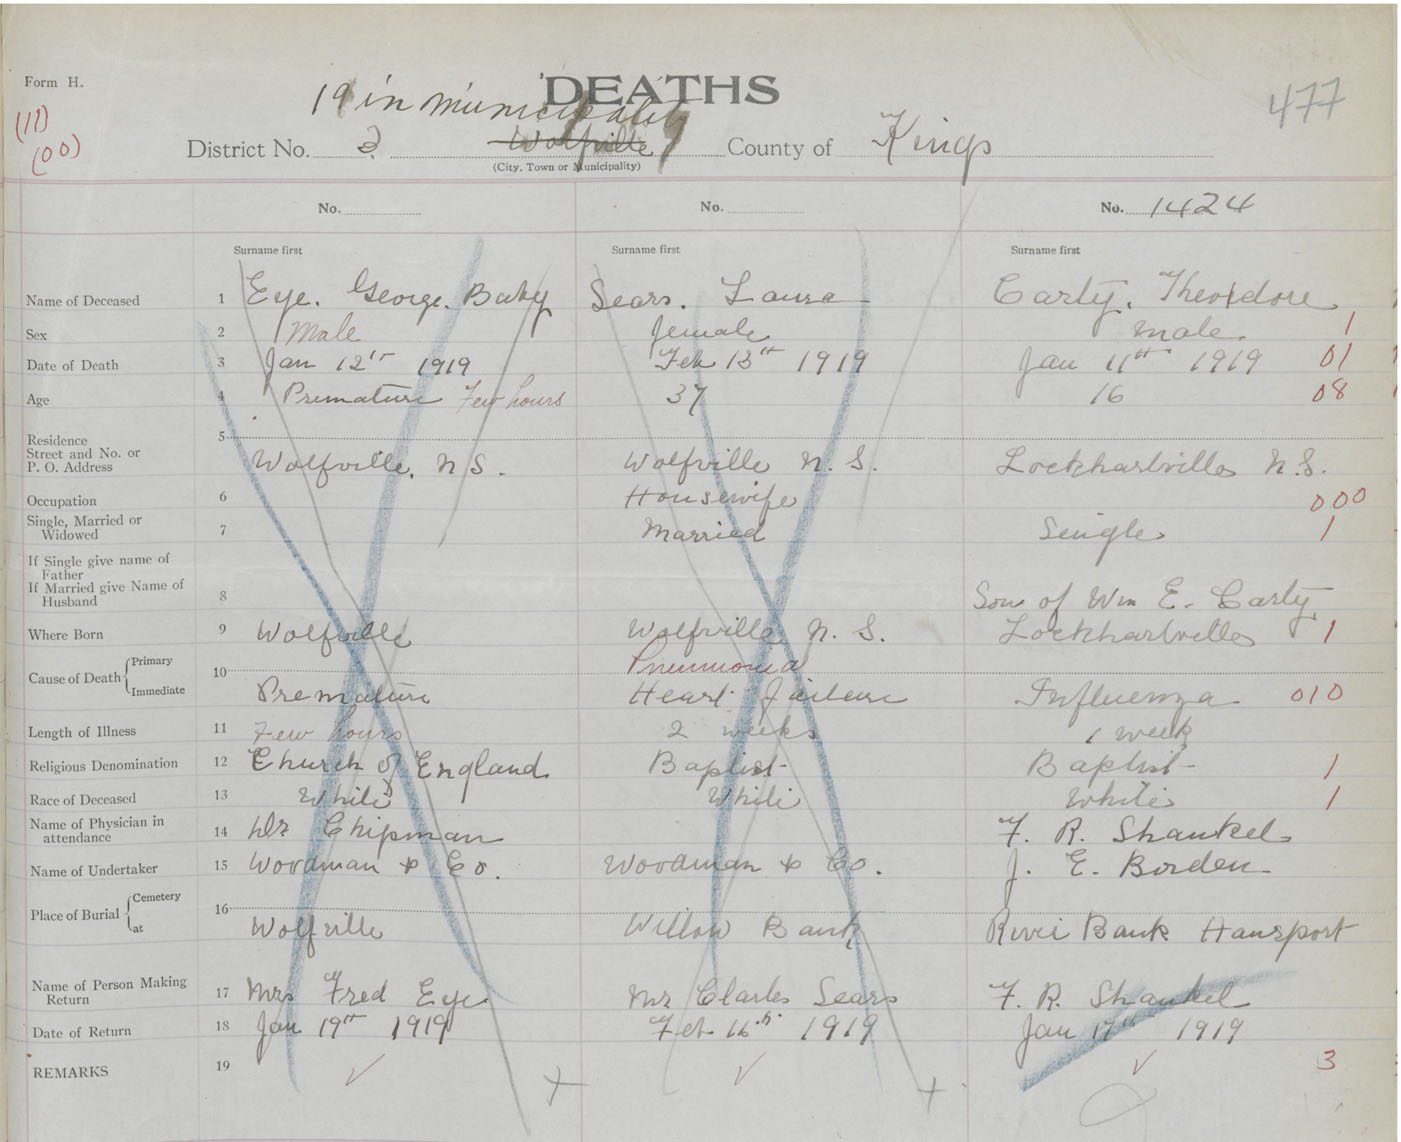 Form H.
DEATHS
477
(11)
(00)
19 in municipality
District No. 3 Wolfville County of Kings
(City, Town or Municipality)
No. No. No. 1424
Surname first Surname first Surname first
Name of Deceased 1 Eye. George. Baby Sears. Laura Carty. Theodore
Sex 2 Male female male 1
Date of Death 3 Jan 12th 1919 Feb 13th 1919 Jan 11th 1919 01
Age 4 Premature Few hours 37 16 08
Residence 5
Street and No. or
P. O. Address Wolfville, N S. Wolfville N. S. Lockhartville N.S.
Occupation 6 Housewife 000
Single, Married or
Widowed 7 Married Single 1
If Single give name of
Father
If Married give Name of
Husband 8 Son of Wm E. Carty
Where Born 9 Wolfville Wolfville N. S. Lockhartville 1
Cause of Death Primary 10 Pneumonia
Immediate Premature Heart failure Influenza 010
Length of Illness 11 Few hours 2 weeks 1 week
Religious Denomination 12 Church of England Baptist Baptist 1
Race of Deceased 13 White White White 1
Name of Physician in
attendance 14 Dr Chipman F. R. Shankel
Name of Undertaker 15 Woodman & Co. Woodman & Co. J. E. Borden
Place of Burial Cemetery 16
at Wolfville Willow Bank River Bank Hansport
Name of Person Making
Return 17 Mrs Fred Eye Mr Charles Sears F. R. Shankel
Date of Return 18 Jan 19th 1919 Feb 16th 1919 Jan 17th 1919
REMARKS 19 3